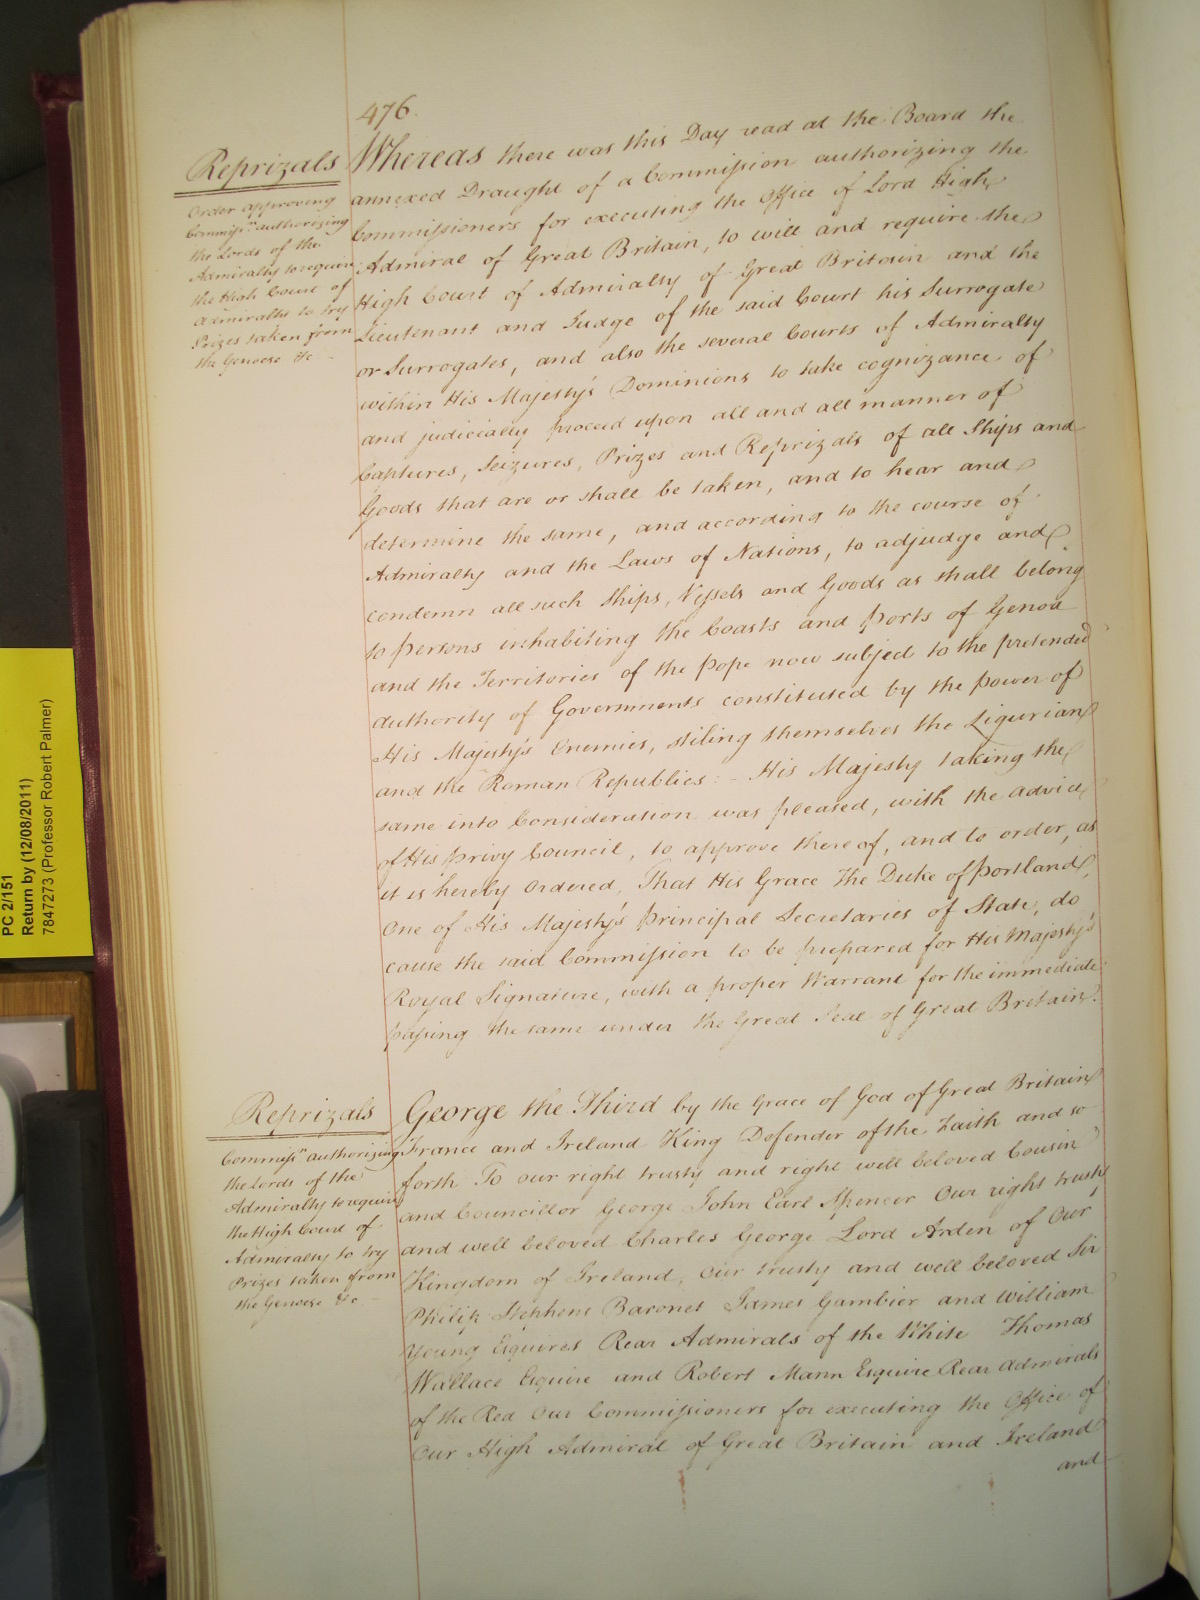 476.
Reprizals
Order approving
Commissn. authorizing
the Lords of the
Admiralty to require
the High Court of
Admiralty to try
Prizes taken from
the Genoese &c
Whereas there was this Day read at the Board the
annexed Draught of a Commission authorizing the
Commissioners for executing the Office of Lord High
Admiral of Great Britain, to will and require the
High Court of Admiralty of Great Britain and the
Lieutenant and Judge of the said Court his Surrogate
or Surrogates, and also the several Courts of Admiralty
within His Majesty's Dominions to take cognizance of
and judicially proceed upon all and all manner of
Captures, Seizures, Prizes and Reprizals of all Ships and
Goods that are or shall be taken, and to hear and
determine the same, and according to the course of
Admiralty and the Laws of Nations, to adjudge and
condemn all such Ships, Vessels and Goods as shall belong
to persons inhabiting the Coasts and Ports of Genoa
and the Territories of the Pope now subject to the pretended
authority of Governments constituted by the power of
His Majesty's Enemies, stiling themselves the Ligurian
and the Roman Republics:- His Majesty taking the
same into Consideration was pleased, with the advice
of His Privy Council, to approve thereof, and to order, as
it is hereby Ordered, That His Grace The Duke of Portland,
One of His Majesty's Principal Secretaries of State, do
cause the said Commission to be prepared for His Majesty's
Royal Signature, with a proper Warrant for the immediate
passing the same under the Great Seal of Great Britain.
Reprizals
Commissn. authorizing
the Lords of the
Admiralty to require
the High Court of
Admiralty to try
Prizes taken from
the Genoese &c
George the Third by the Grace of God of Great Britain
France and Ireland King Defender of the Faith and so
forth To our right trusty and right well beloved Cousin
and Councillor George John Earl Spencer Our right trusty
and well beloved Charles George Lord Arden of Our
Kingdom of Ireland, Our trusty and well beloved Sir
Philip Stephens Baronet James Gambier and William
Young Esquires Rear Admirals of the White Thomas
Wallace Esquire and Robert Mann Esquire Rear Admirals
of the Red Our Commissioners for executing the Office of
Our High Admiral of Great Britain and Ireland
and
PC 2/151
Return by (12/08/2011)
7847273 (Professor Robert Palmer)